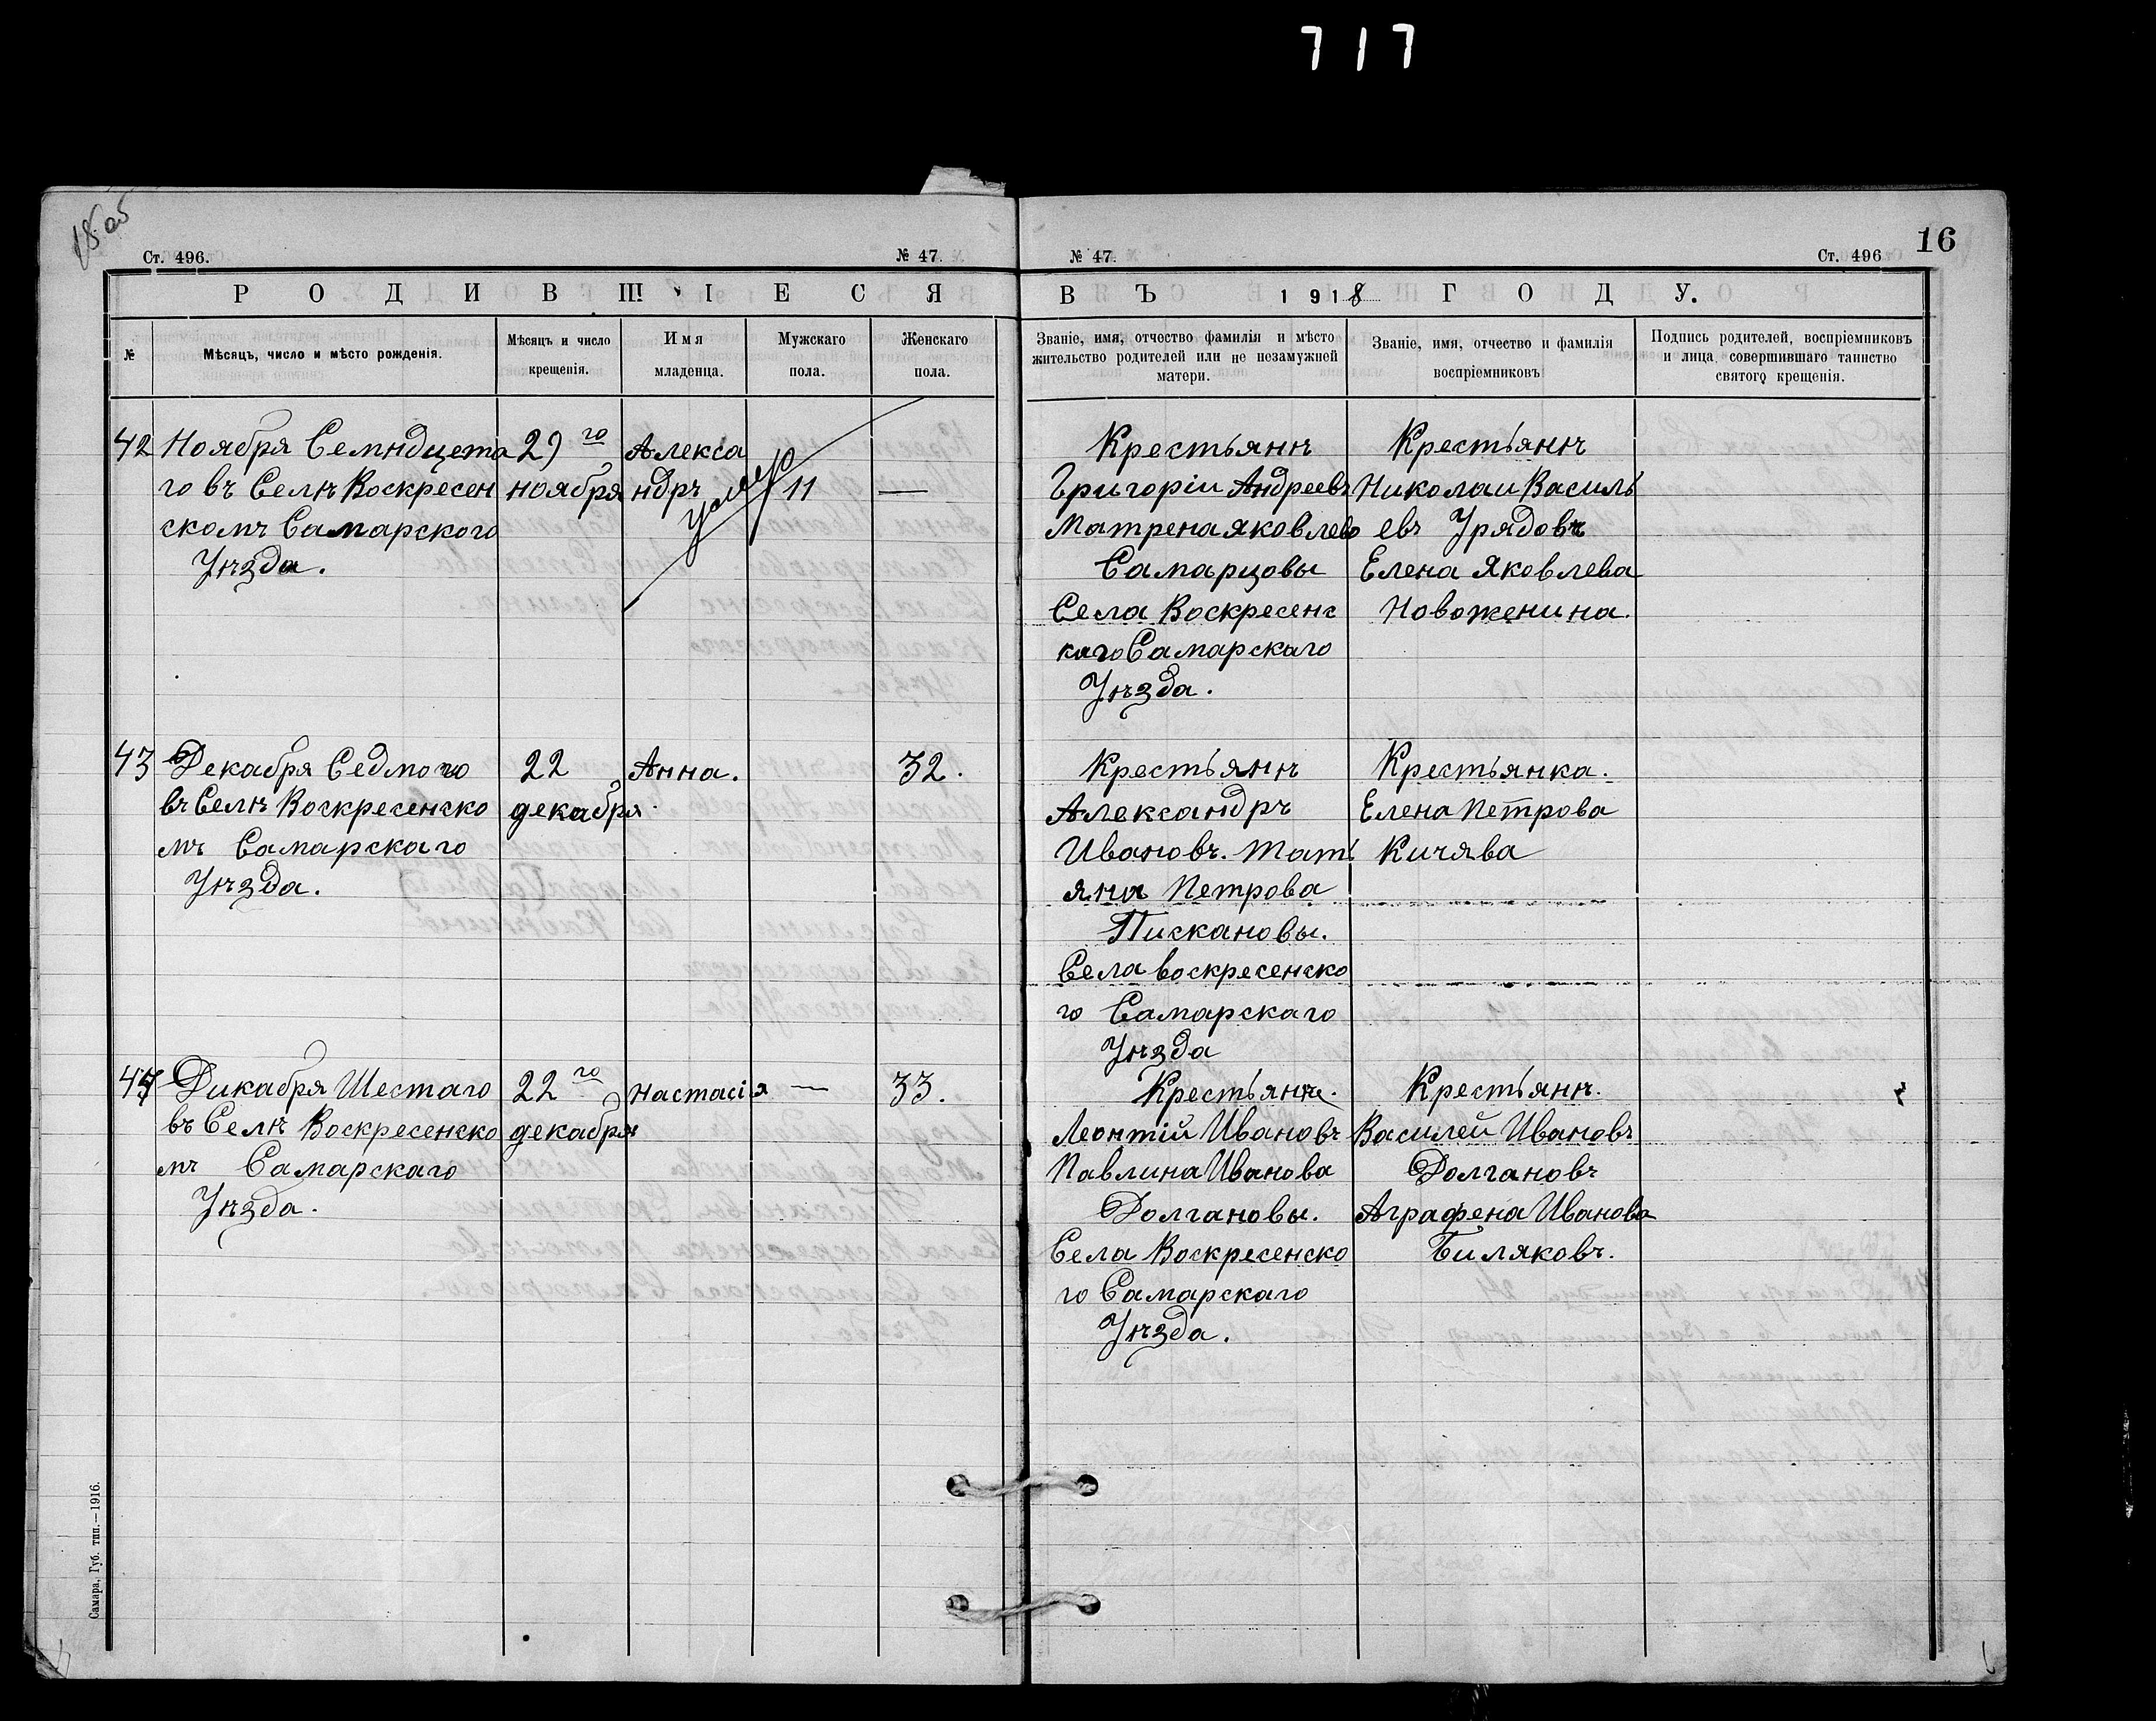 717
16
Ст. 496.
№ 47.
№ 47.
Ст. 496
РОДИВШІЕСЯ
ВЪ 1918 ГОДУ.
№
Мѣсяцъ, число и мѣсто рожденія.
Мѣсяцъ и число
крещенія.
Имя
младенца.
Мужскаго
пола.
Женскаго
пола.
Званіе, имя, отчество фамилія и мѣсто
жительство родителей или не незамужней
матери.
Званіе, имя, отчество и фамилія
воспріемниковъ
Подпись родителей, воспріемниковъ
и лица, совершившаго таинство
святого крещенія.
42
Ноября Семндцета
го въ Селѣ Воскресен
скомъ Самарского
Уѣзда.
29 го
ноября
Алекса
ндръ
умер
11
—
Крестьянѣ
Григоріи Андреевъ
Матрена Яковлево
Самарцовы
Села Воскресенс
каго Самарскаго
Уѣзда.
Крестьянѣ
Николаи Василь
евъ Урядовъ
Елена Яковлева
Новоженина.
43
Декабря Седмого
въ Селѣ Воскресенско
мъ Самарскаго
Уѣзда.
22
декабря
Анна.
32.
Крестьянѣ
Александръ
Ивановъ. Тать
яна Петрова
Пискановы.
Села воскресенско
го Самарскаго
Уѣзда
Крестьянка.
Елена Петрова
Кичява
44
Дикабря Шестаго
въ Селѣ Воскресенско
мъ Самарскаго
Уѣзда.
22 го
декабря
Настасія
—
33.
Крестьянѣ.
Леонтій Ивановъ
Павлина Иванова
Долгановы.
Села Воскресенско
го Самарскаго
Уѣзда.
Крестьянѣ.
Василей Ивановъ
Долгановъ
Аграфена Иванова
Биляковъ.
Самара, Губ. тип.—1916.